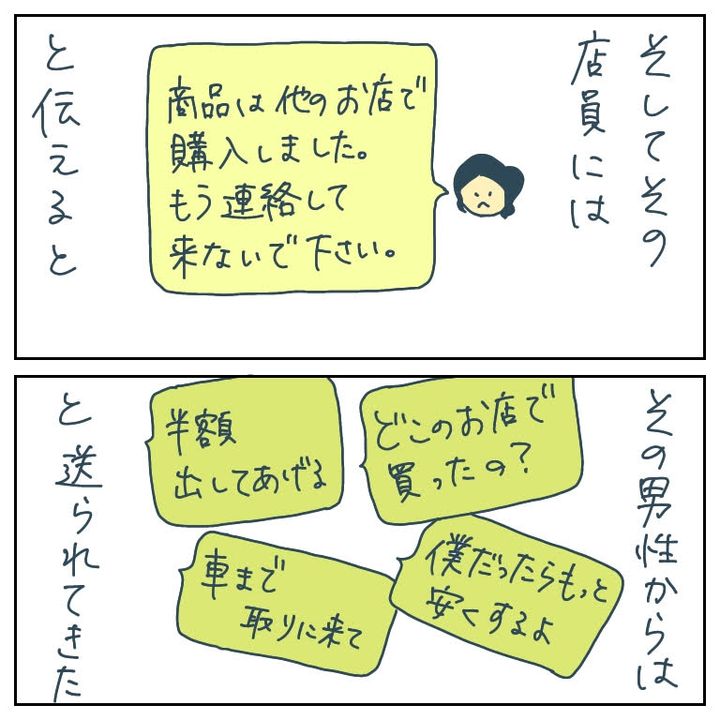 そしてその
店員には
商品は他のお店で
購入しました。
もう連絡して
来ないで下さい。
と伝えると
その男性からは
どこのお店で
買ったの？
半額
出してあげる
僕だったらもっと
安くするよ
車まで
取りに来て
と送られてきた